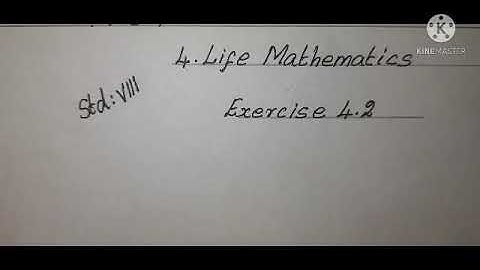 4. Life Mathematics
Std: VIII
Exercise 4.2
KINEMASTER